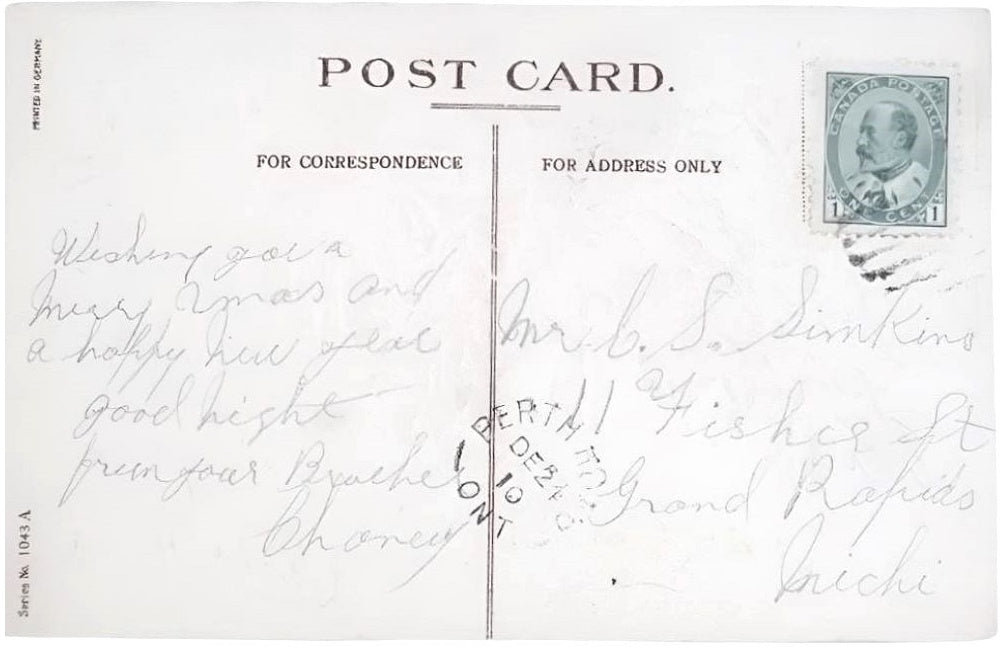 PRINTED IN GERMANY
POST CARD.
FOR CORRESPONDENCE
FOR ADDRESS ONLY
CANADA POSTAGE
ONE CENT
1 1
Wishing you a
merry Xmas and
a happy new year
good night
from your Brother
Choney
Mr. C. S. Simkins
11 Fisher St
Grand Rapids
Michi
DE 24
10
ONT
Series No. 1043 A